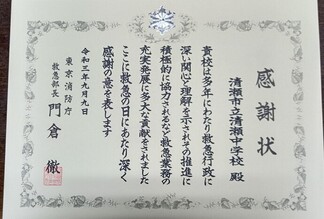 感謝状
清瀬市立清瀬中学校 殿
貴校は多年にわたり救急行政に
深い関心と理解を示されその推進に
積極的に協力されるなど救急業務の
充実発展に多大な貢献をされました
ここに救急の日にあたり深く
感謝の意を表します
令和三年九月九日
東京消防庁
救急部長 門倉 徹